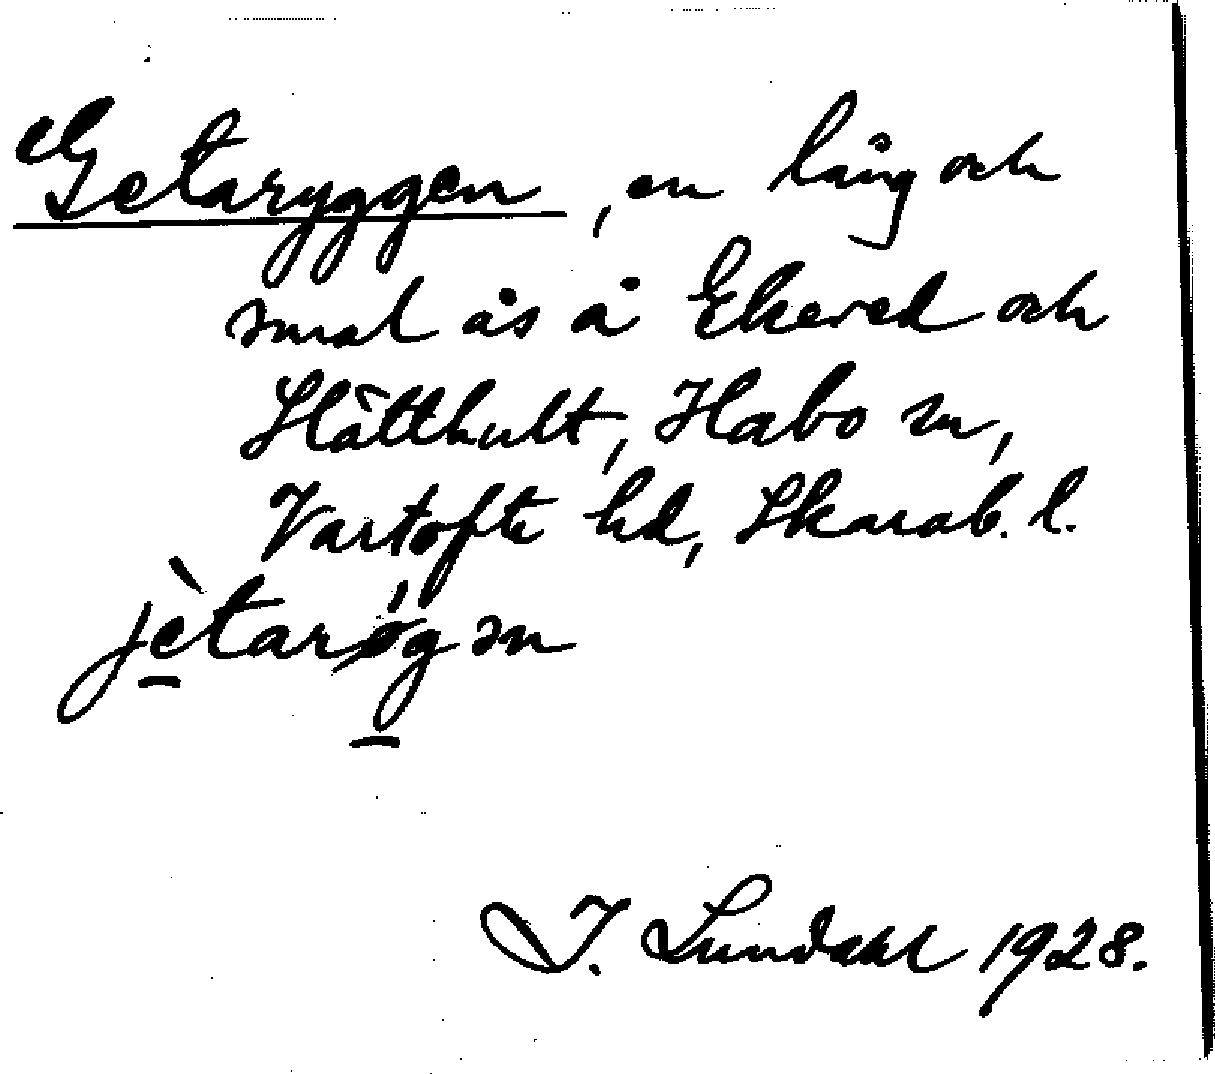 Getaryggen, en lång och
smal ås å Ekered och
Slätthult, Habo sn,
Vartofte hd, Skarab. l.
jètarøgən
I. Lundahl 1928.